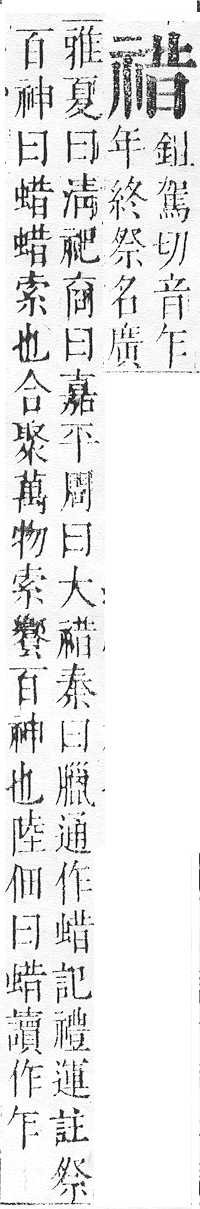 䄍
鉏駕切音乍
年終祭名廣
雅夏曰淸祀商曰嘉平周曰大䄍秦曰臘通作蜡記禮運註祭
百神曰蜡蜡索也合聚萬物索饗百神也陸佃曰蜡讀作乍